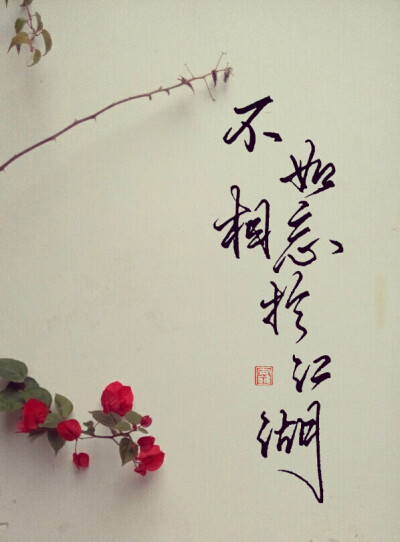 不如相忘於江湖